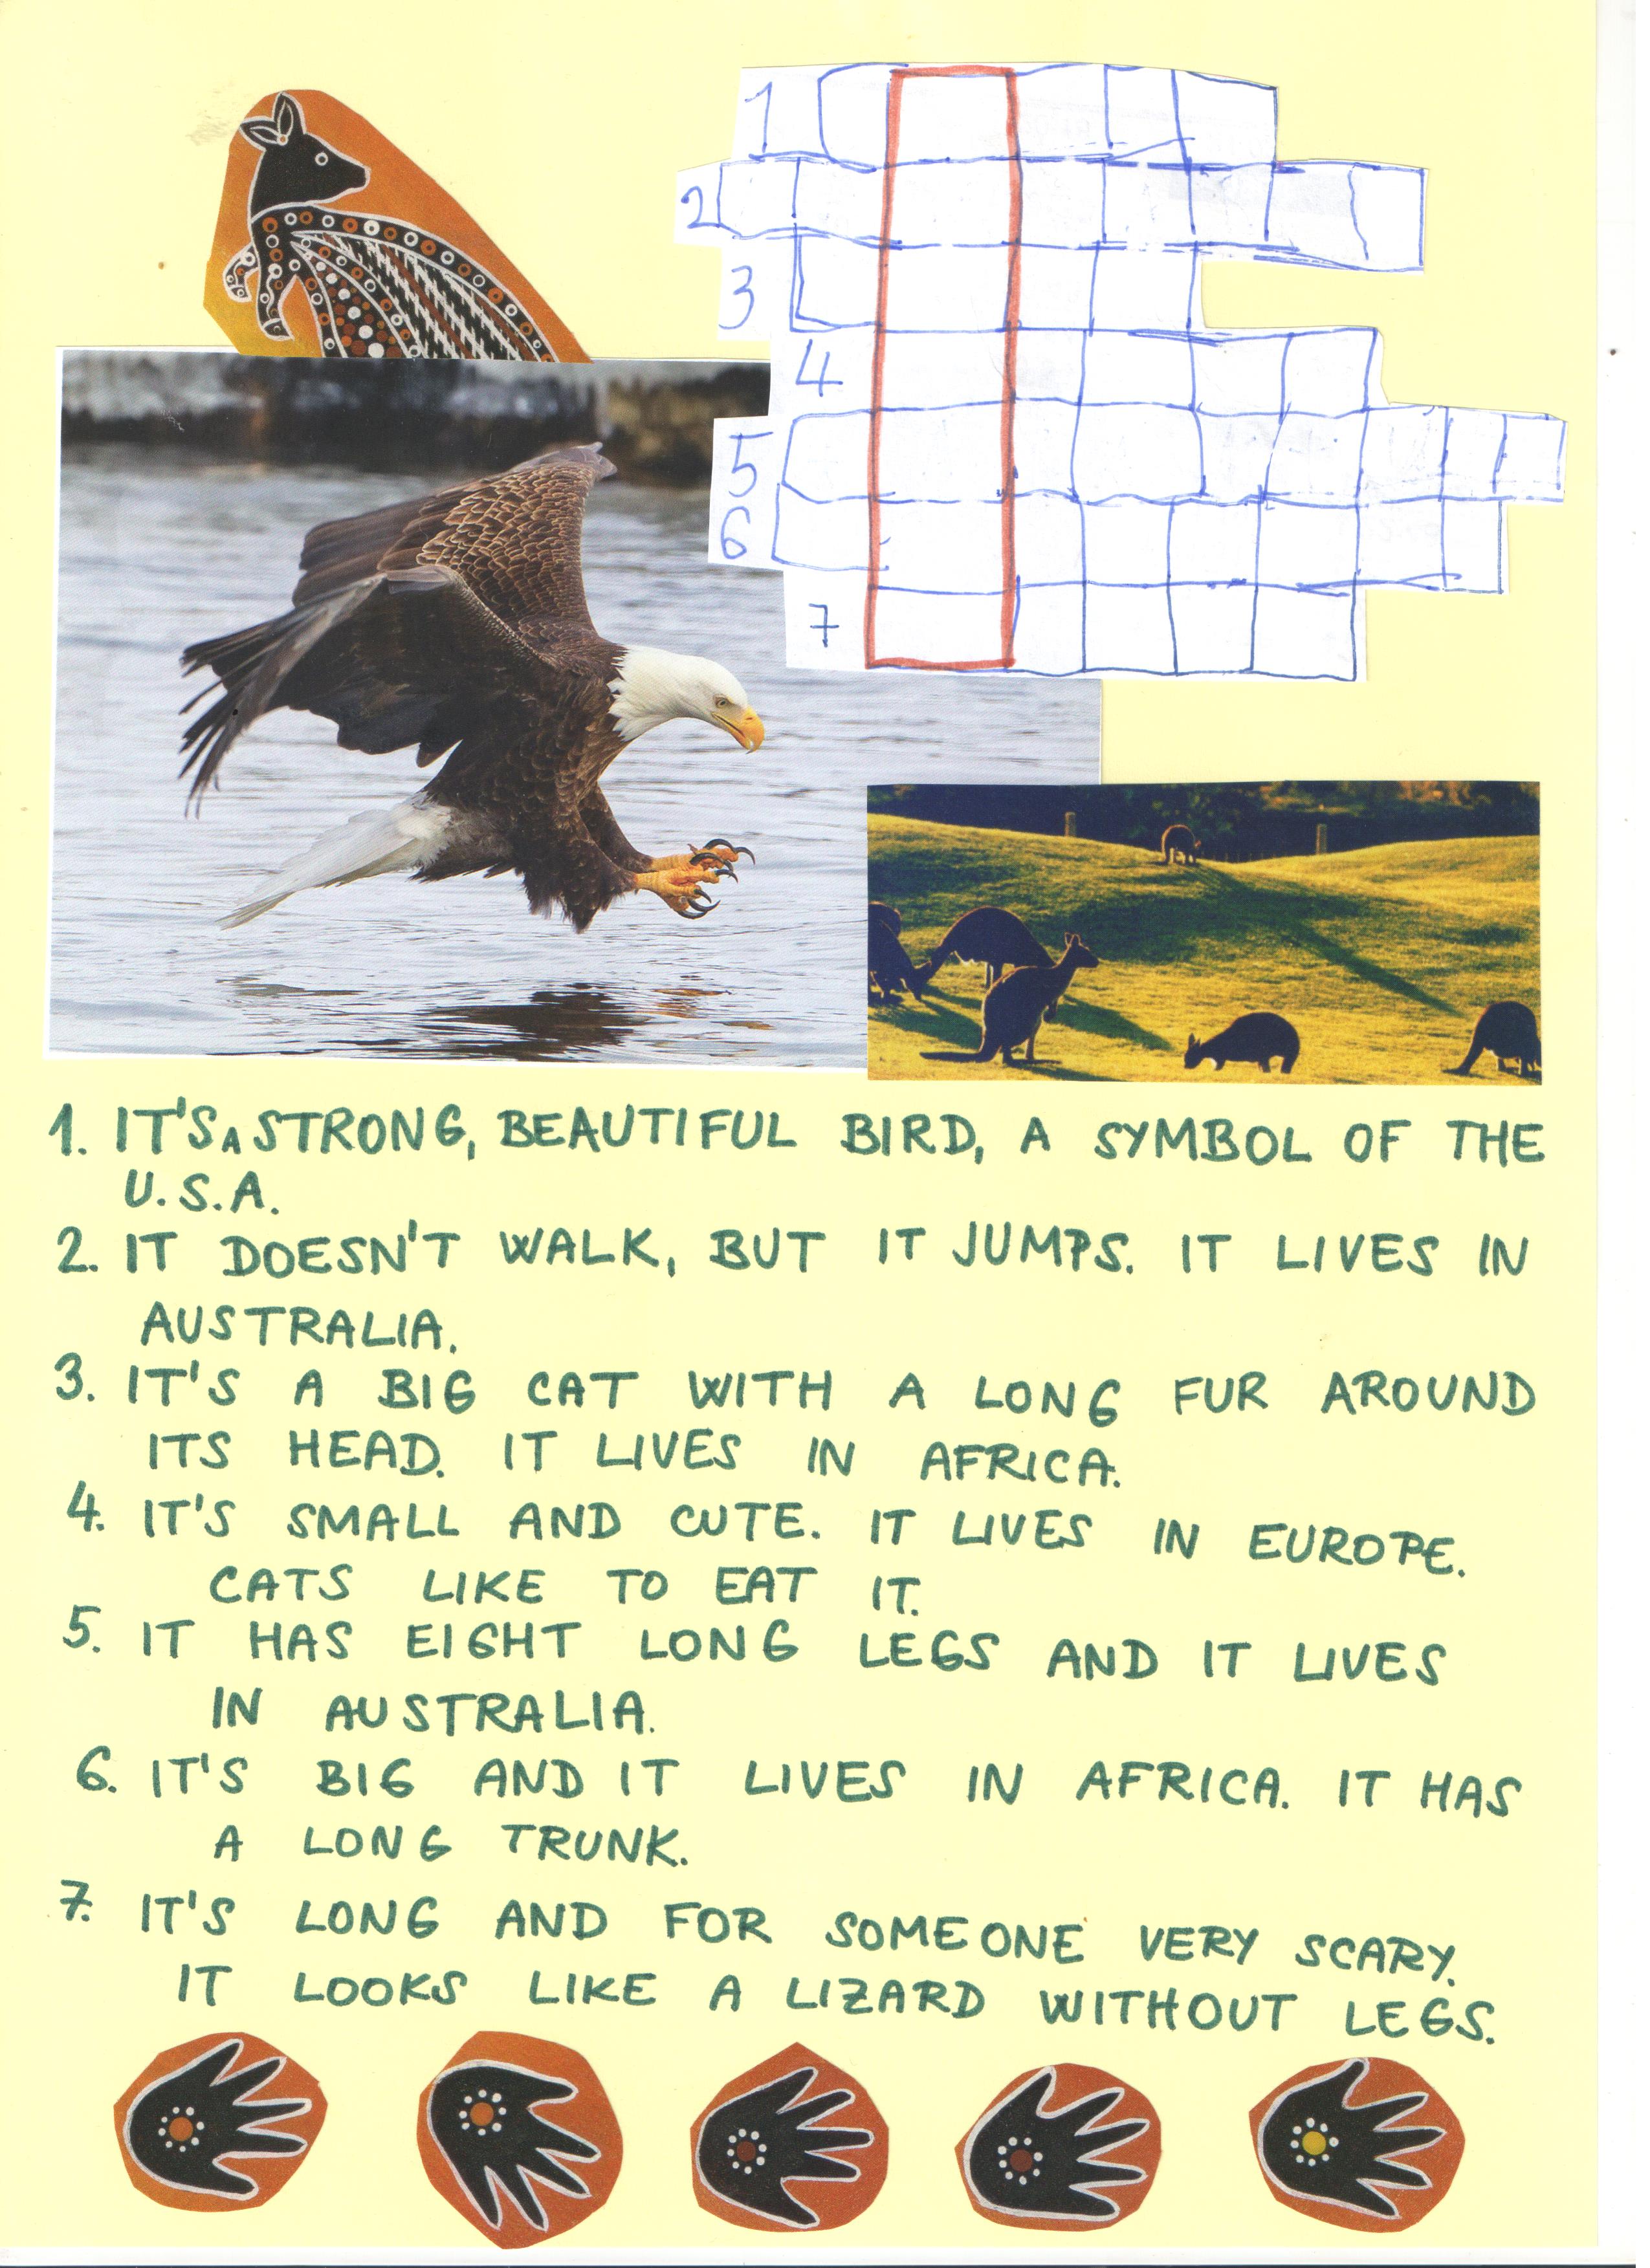 1
2
3
4
5
6
7
1. IT'S A STRONG, BEAUTIFUL BIRD, A SYMBOL OF THE
U.S.A.
2. IT DOESN'T WALK, BUT IT JUMPS. IT LIVES IN
AUSTRALIA.
3. IT'S A BIG CAT WITH A LONG FUR AROUND
ITS HEAD. IT LIVES IN AFRICA.
4. IT'S SMALL AND CUTE. IT LIVES IN EUROPE.
CATS LIKE TO EAT IT.
5. IT HAS EIGHT LONG LEGS AND IT LIVES
IN AUSTRALIA.
6. IT'S BIG AND IT LIVES IN AFRICA. IT HAS
A LONG TRUNK.
7. IT'S LONG AND FOR SOMEONE VERY SCARY.
IT LOOKS LIKE A LIZARD WITHOUT LEGS.